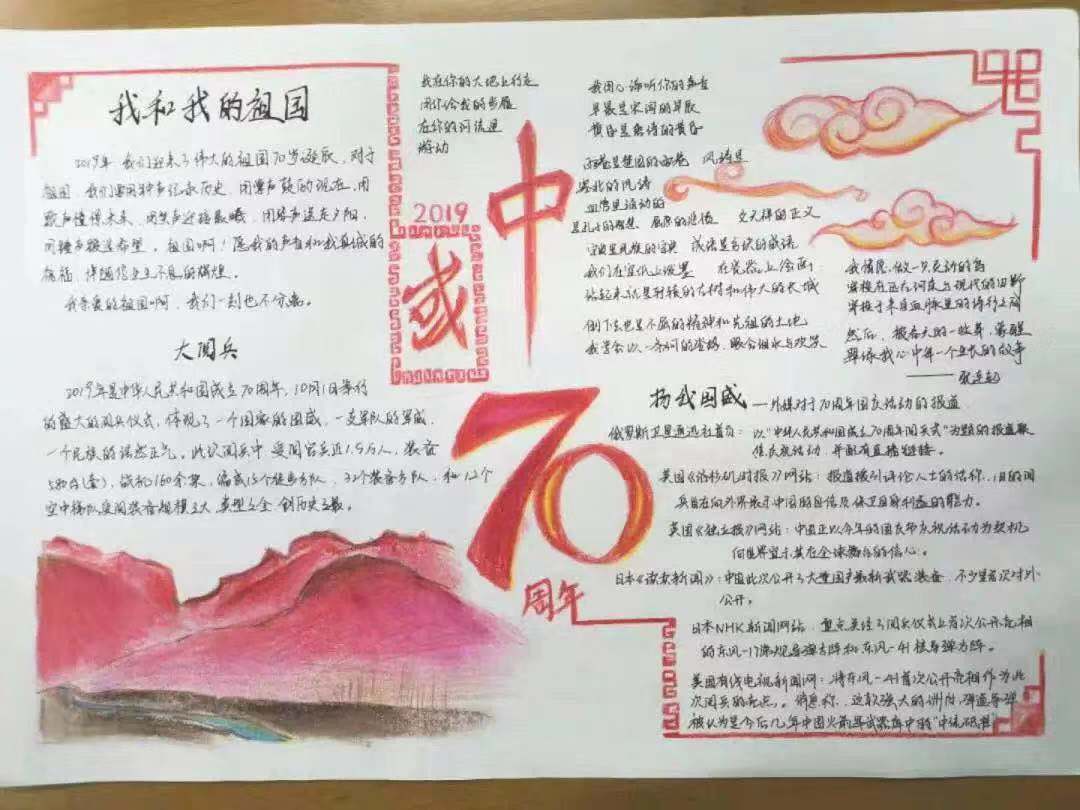 我和我的祖国
2019年，我们迎来了伟大的祖国70岁诞辰，对于
祖国，我们要用钟声纪录历史，用掌声鼓励现在，用
歌声憧憬未来，用笑声迎接晨曦，用琴声送走夕阳，
用锤声挨送希望。祖国啊！愿我的声音和我真诚的
祝福，伴随您生生不息的辉煌。
我亲爱的祖国啊，我们一刻也不分离。
大阅兵
2019年是中华人民共和国成立70周年，10月1日举行
的盛大的阅兵仪式，体现了一个国家的国威，一支军队的军威，
一个民族的浩然正气。此次阅兵中受阅官兵近1.5万人，装备
580台(套)，战机160余架，编成15个徒步方队，32个装备方队，和12个
空中梯队受阅装备规模之大，类型之全，创历史之最。
我在你的大地上行走
用你给我的步履
在你的河流里
游动
2019
中
国
70
周年
我用心谛听你的声音
早晨是宋词的早晨
黄昏是唐诗的黄昏
雨巷是楚国的雨巷 风骚是
湖北的风骚
血管里涌动的
是孔子的 屈原的悲愤 文天祥的正义
字典里民族的字典 成语是古典的成语
我们在宣纸上泼墨 在瓷器上绘画
站起来就是井陉的古树和伟大的长城
倒下去也是不屈的精神和先祖的土地
我学会以一条河的姿势，吸吮泪水与欢笑
我情愿，做一只灵动的鸟
穿梭在远古河床与现代的田野
穿梭于来自血脉里的诗行之间
然后，被春天的一枚草，蘸醒
翠绿我心中年一个生长的故事
——张连起
扬我国威——外媒对于70周年国庆活动的报道
俄罗斯卫星通讯社首页：以“中华人民共和国成立70周年阅兵式”为题的报道聚
焦庆祝活动，并配有直播链接。
英国《洛杉矶时报》网站：报道援引评论人士的话称，1日的阅
兵旨在向外界展示中国的自信及保卫自身利益的能力。
英国《独立报》网站：中国正以今年的国庆节庆祝活动为契机
向世界宣示其在全球舞台的信心。
日本《读卖新闻》：中国此次公开了大量国产最新武器装备，不少是首次对外
公开。
日本NHK新闻网站，重点关注了阅兵仪式上首次公开亮相
的东风-17常规导弹方阵和东风-41核导弹方阵。
美国有线电视新闻网：将东风-41首次公开亮相作为此
次阅兵的亮点。消息称，这款强大的洲际弹道导弹
被认为是今后几年中国火箭军武器库中的“中流砥柱”